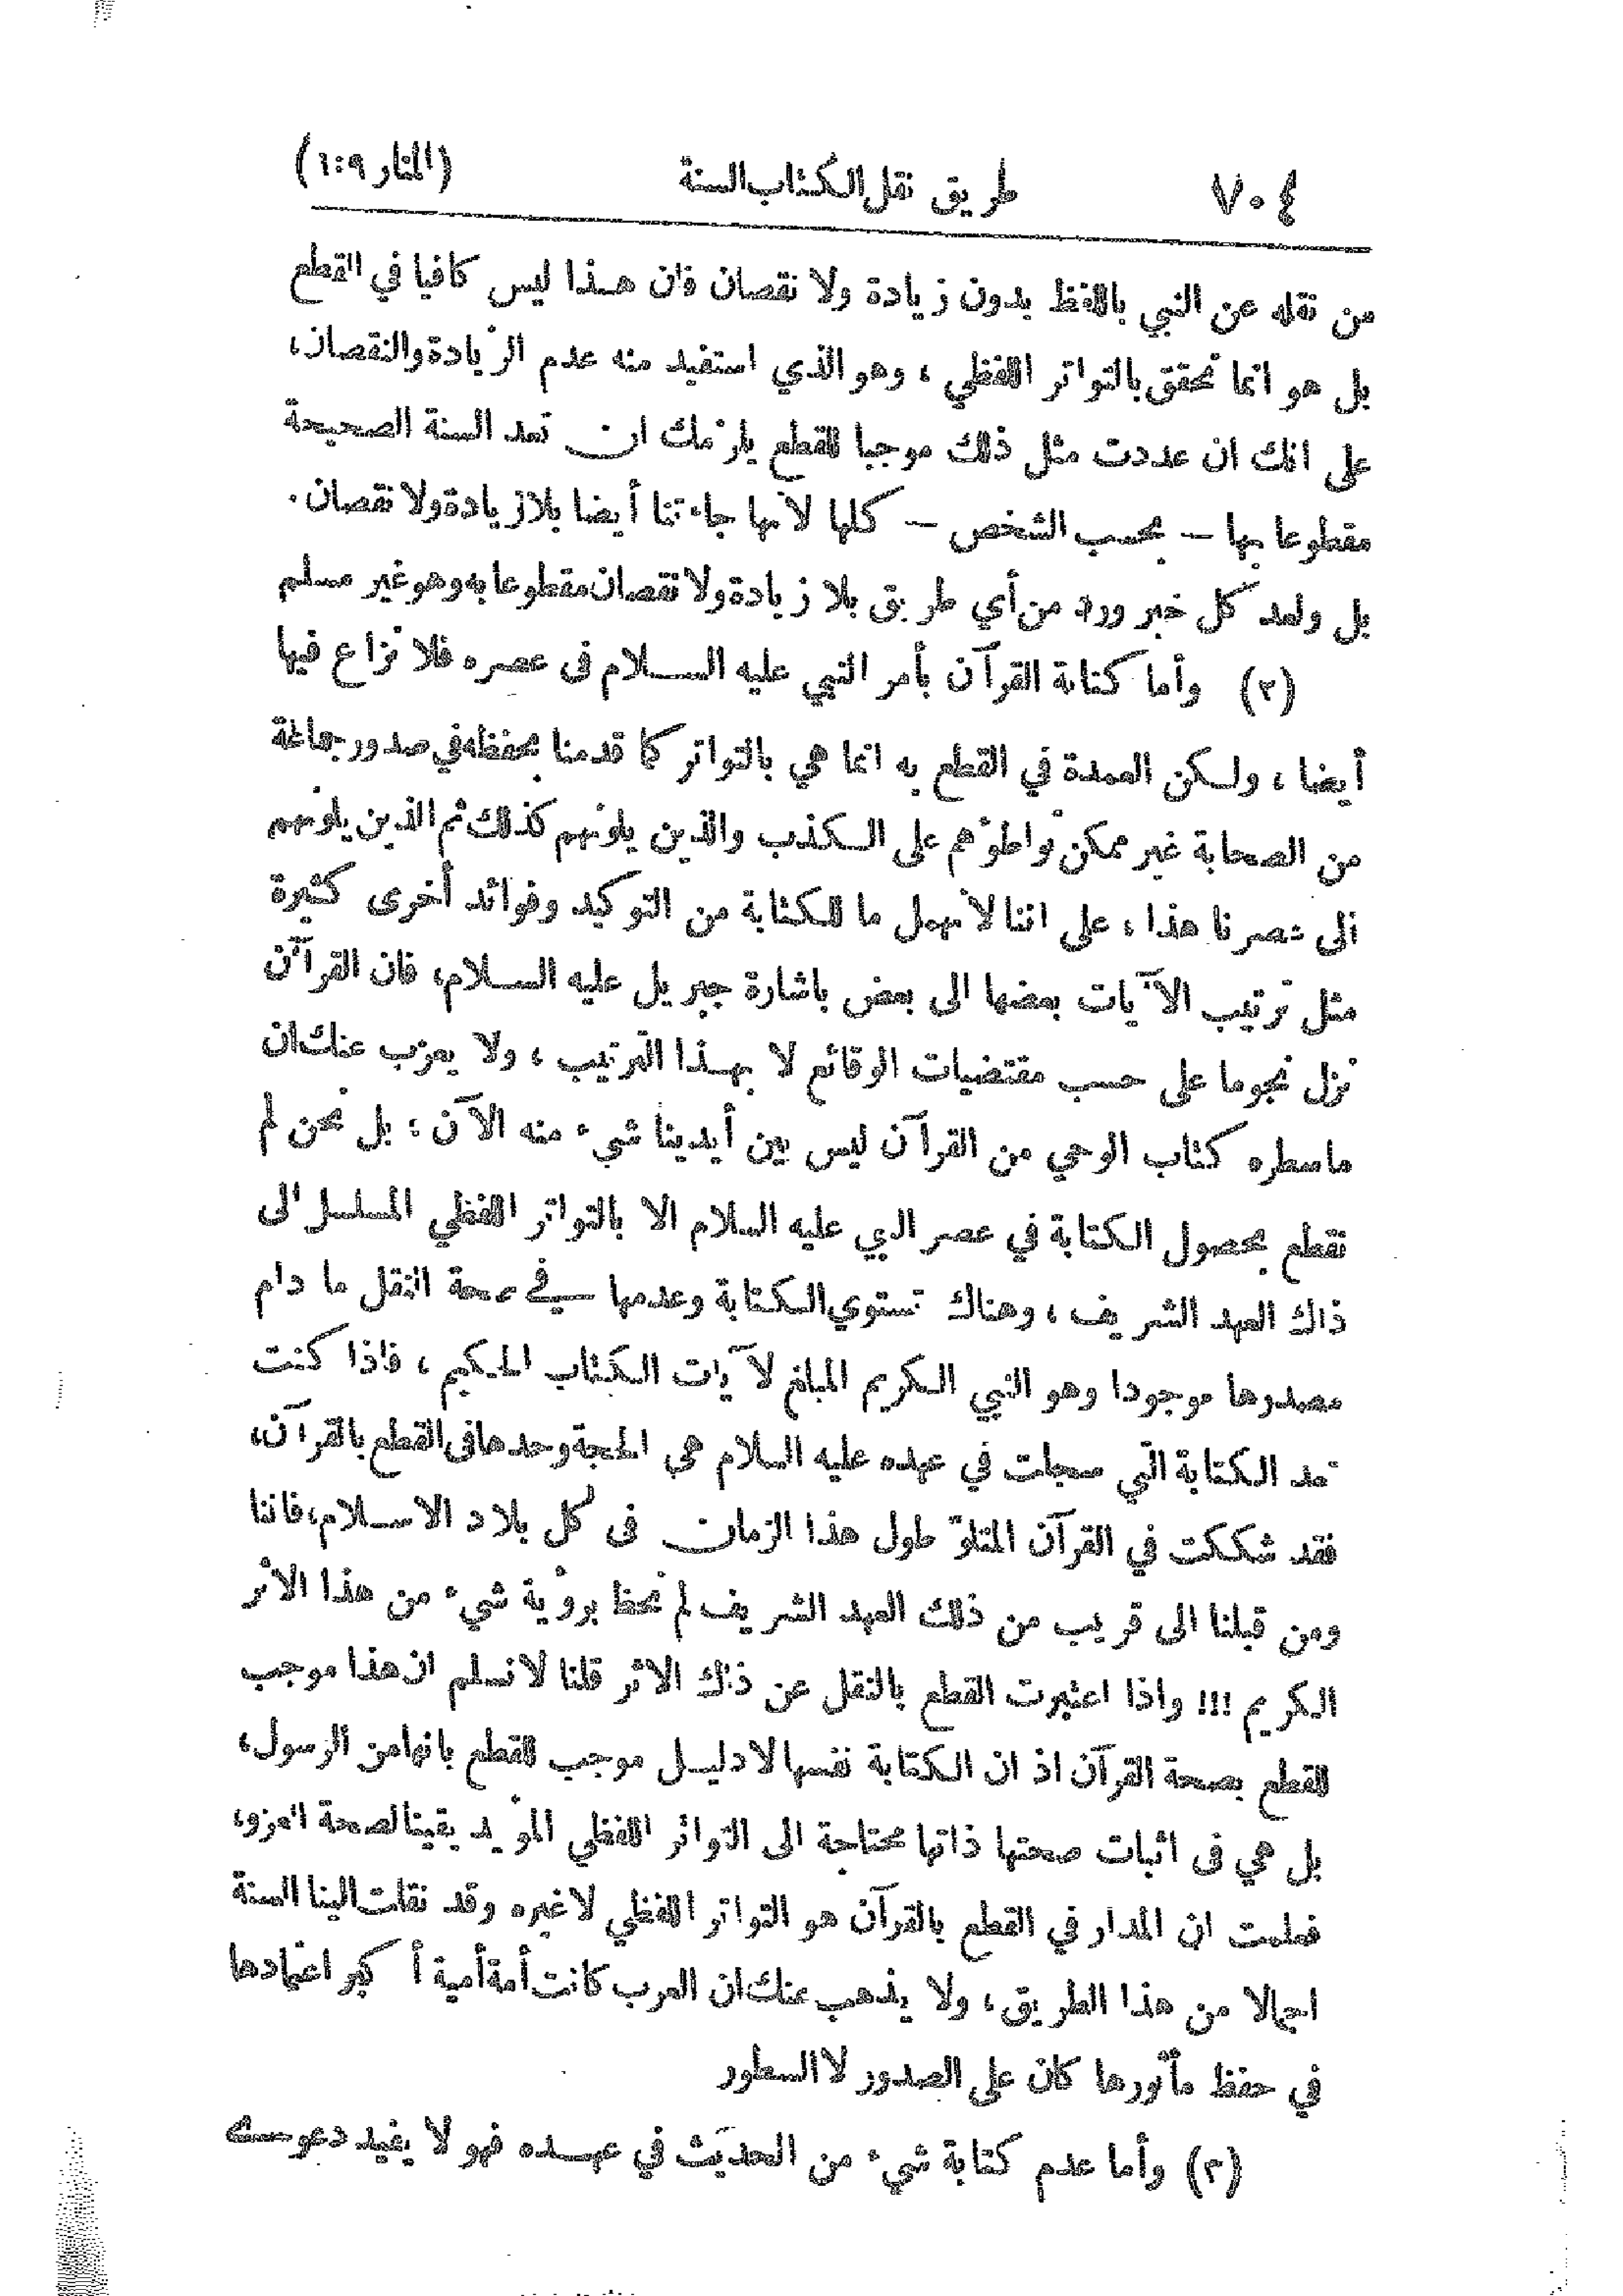 ٧٠٤ طريق نقل الكتاب السنة (المنار ١:٩)
من نقله عن النبي باللفظ بدون زيادة ولا نقصان فان هذا ليس كافيا في القطع
بل هو انما تحقق بالتواتر اللفظي ، وهو الذي استفيد منه عدم الزيادة والنقصان،
على انك ان عددت مثل ذلك موجبا للقطع يلزمك ان تعد السنة الصحيحة
مقطوعا بها — بحسب الشخص — كلها لأنها جاءتنا أيضا بلا زيادة ولا نقصان .
بل ولعد كل خبر ورد من أي طريق بلا زيادة ولا نقصان مقطوعا به وهو غير مسلم
(٢) وأما كتابة القرآن بأمر النبي عليه السلام فى عصره فلا نزاع فيها
أيضا ، ولكن العمدة في القطع به انما هي بالتواتر كما قدمنا بحفظه في صدور جماعة
من الصحابة غير ممكن تواطؤهم على الكذب والذين يلونهم كذلك ثم الذين يلونهم
الى عصرنا هذا ، على اننا لا نهمل ما للكتابة من التوكيد وفوائد أخرى كثيرة
مثل ترتيب الآيات بعضها الى بعض باشارة جبريل عليه السلام، فان القرآن
نزل نجوما على حسب مقتضيات الوقائع لا بهذا الترتيب ، ولا يعزب عنك ان
ماسطره كتاب الوحي من القرآن ليس بين أيدينا شيء منه الآن : بل نحن لم
نقطع بحصول الكتابة في عصر النبي عليه السلام الا بالتواتر اللفظي المسلسل الى
ذاك العهد الشريف ، وهناك تستوي الكتابة وعدمها في صحة النقل ما دام
مصدرها موجودا وهو النبي الكريم المبلغ لآيات الكتاب الحكيم ، فاذا كنت
تعد الكتابة التي سجلت في عهده عليه السلام هي الحجة وحدها فى القطع بالقرآن،
فقد شككت في القرآن المتلوّ طول هذا الزمان فى كل بلاد الاسلام، فاننا
ومن قبلنا الى قريب من ذلك العهد الشريف لم نحظ برؤية شيء من هذا الاثر
الكريم !!! واذا اعتبرت القطع بالنقل عن ذلك الاثر قلنا لا نسلم ان هذا موجب
للقطع بصحة القرآن اذ ان الكتابة نفسها لا دليل موجب للقطع بانها من الرسول،
بل هي فى اثبات صحتها ذاتها محتاجة الى التواتر اللفظي المؤيد يقينا لصحة العزو،
فعلمت ان المدار في القطع بالقرآن هو التواتر اللفظي لا غيره وقد نقلت الينا السنة
اجمالا من هذا الطريق، ولا يذهب عنك ان العرب كانت أمة أمية أكبر اعتمادها
في حفظ مأثورها كان على الصدور لا السطور
(٣) وأما عدم كتابة شيء من الحديث في عهده فهو لا يفيد دعوى